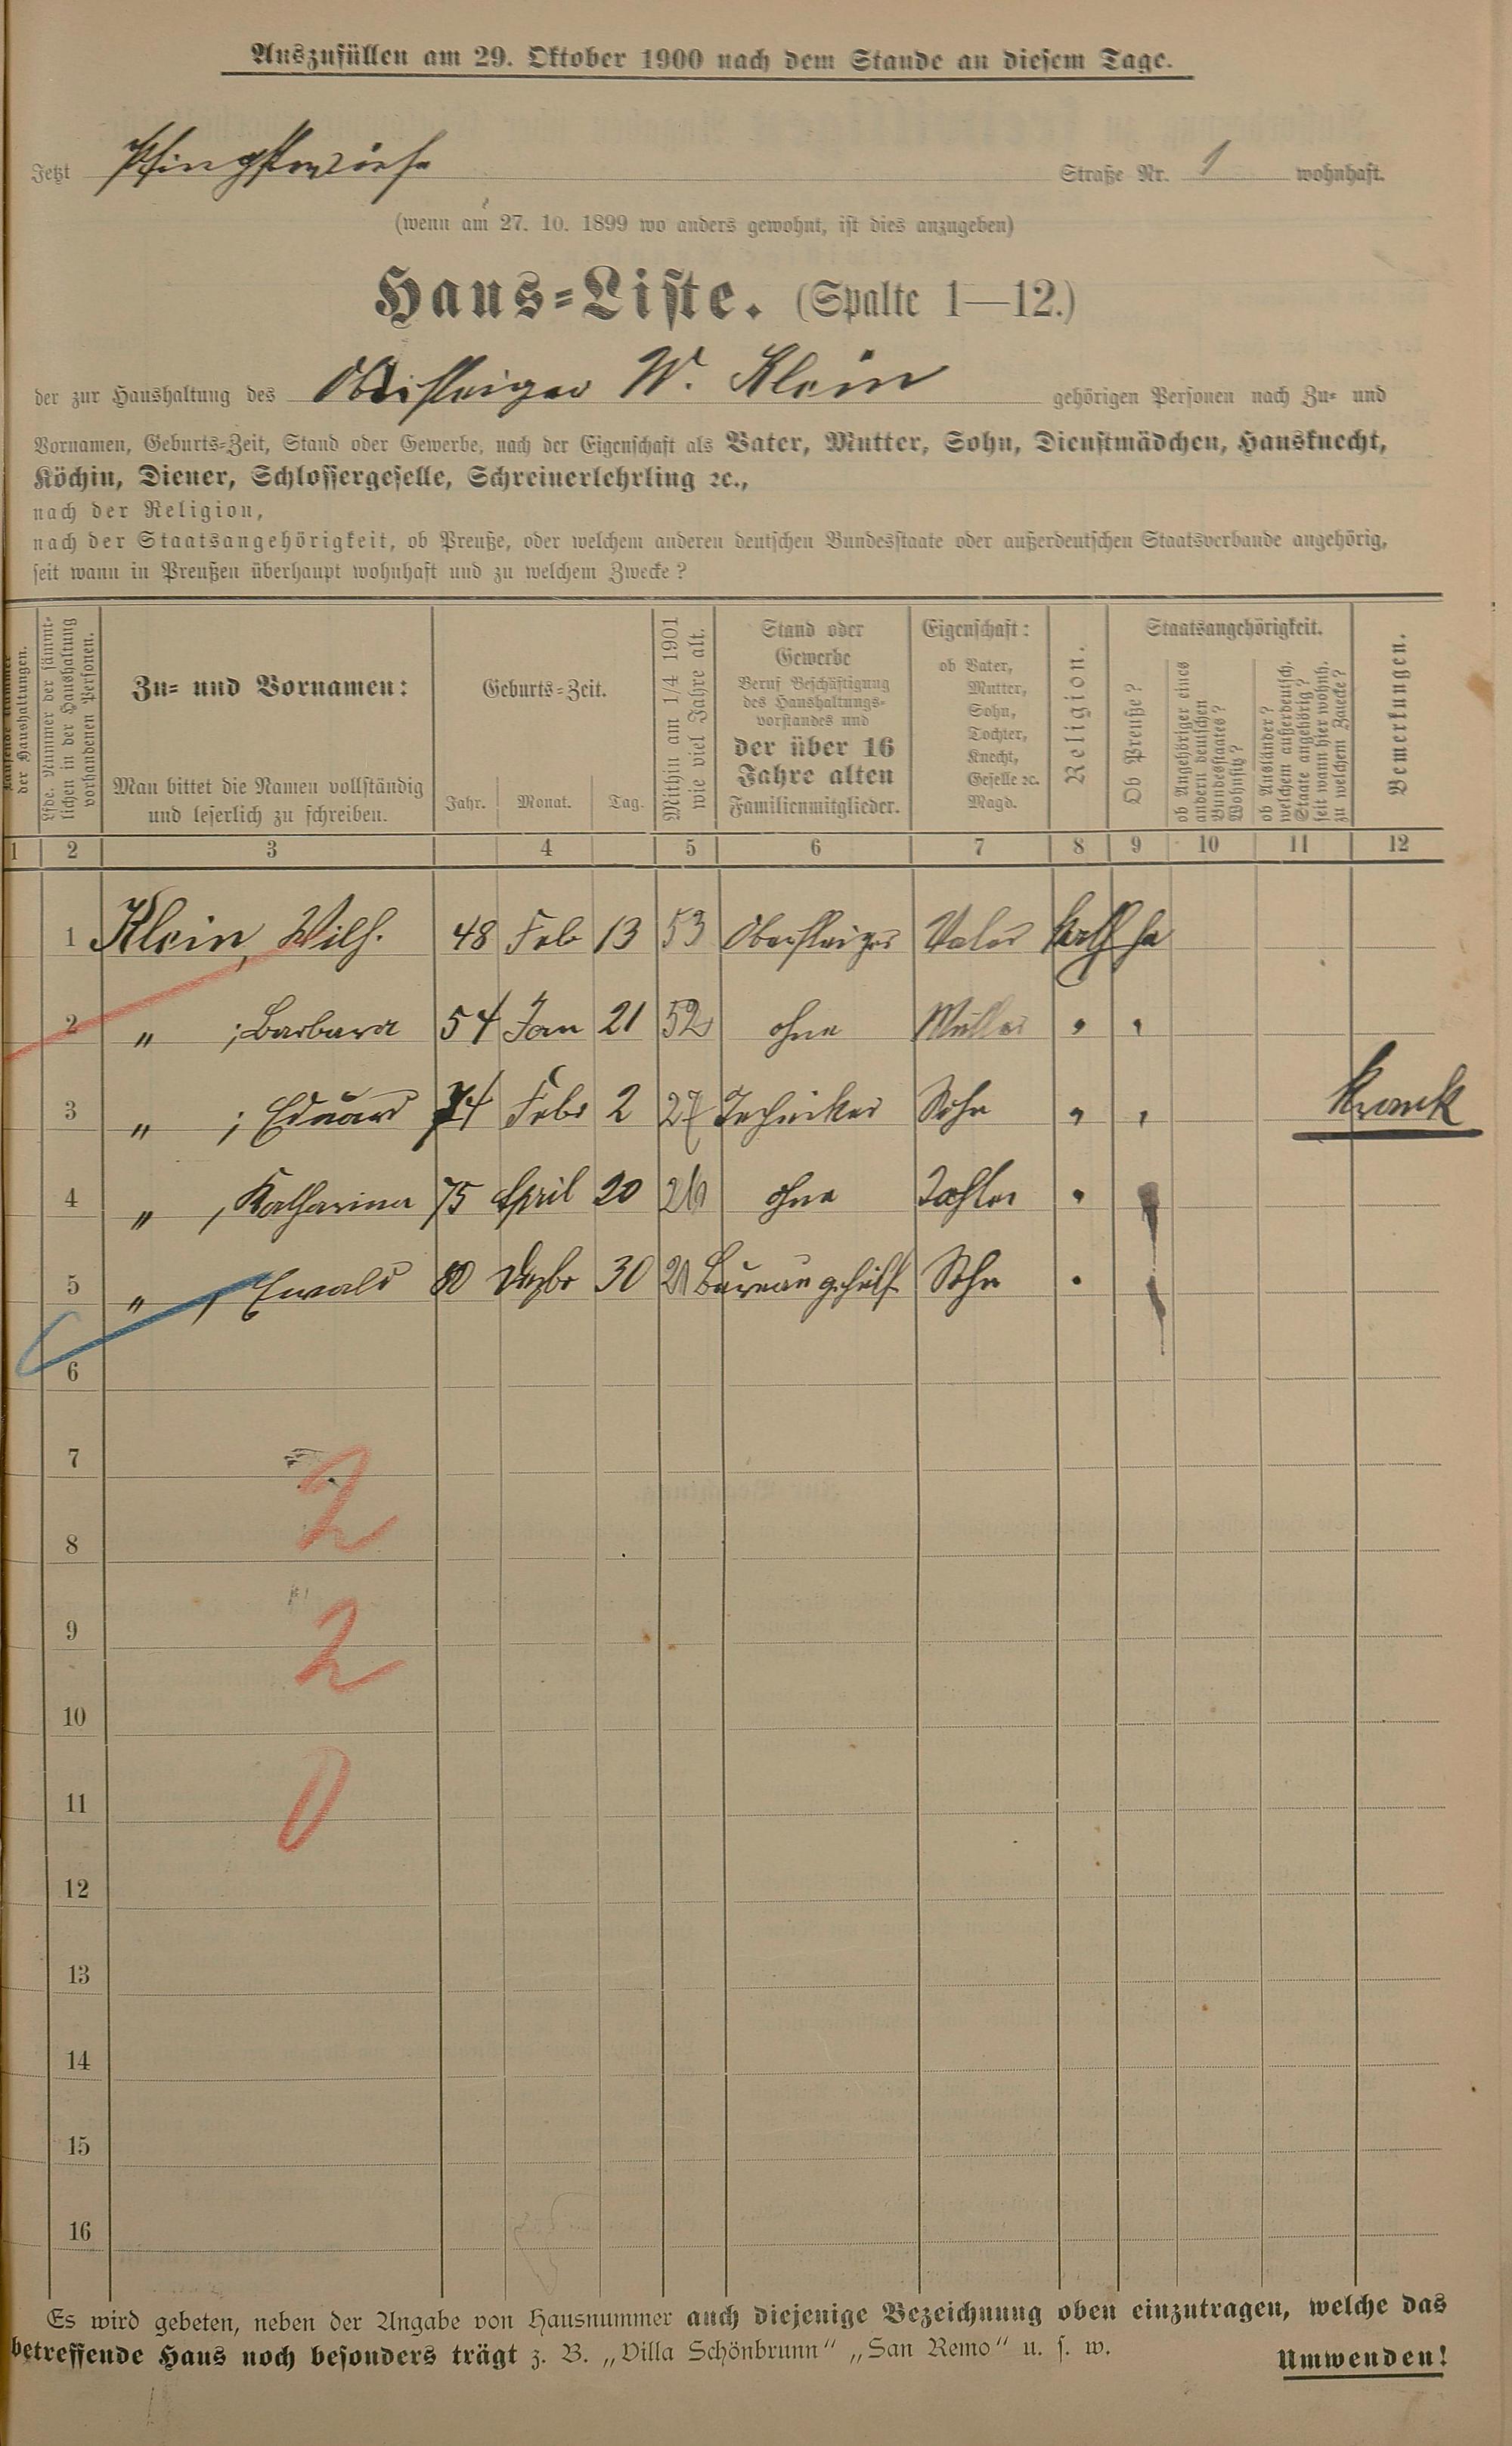 Auszufüllen am 29. Oktober 1900 nach dem Stande an diesem Tage.
Jetzt Pfingstwiese Straße Nr. 1 wohnhaft.
(wenn am 27. 10. 1899 wo anders gewohnt, ist dies anzugeben)
Haus-Liste. (Spalte 1—12.)
der zur Haushaltung des Obersteiger W. Klein gehörigen Personen nach Zu- und
Vornamen, Geburts-Zeit, Stand oder Gewerbe, nach der Eigenschaft als Vater, Mutter, Sohn, Dienstmädchen, Hausknecht,
Köchin, Diener, Schlossergeselle, Schreinerlehrling ꝛc.,
nach der Religion,
nach der Staatsangehörigkeit, ob Preuße, oder welchem anderen deutschen Bundesstaate oder außerdeutschen Staatsverbande angehörig,
seit wann in Preußen überhaupt wohnhaft und zu welchem Zwecke?
Laufende Nummer
der Haushaltungen.
Lfde. Nummer der sämmt-
lichen in der Haushaltung
vorhandenen Personen.
Zu- und Vornamen:
Man bittet die Namen vollständig
und leserlich zu schreiben.
Geburts-Zeit.
Jahr. Monat. Tag.
Mithin am 1/4 1901
wie viel Jahre alt.
Stand oder
Gewerbe
Beruf Beschäftigung
des Haushaltungs-
vorstandes und
der über 16
Jahre alten
Familienmitglieder.
Eigenschaft:
ob Vater,
Mutter,
Sohn,
Tochter,
Knecht,
Geselle ꝛc.
Magd.
Religion.
Staatsangehörigkeit.
Ob Preuße?
ob Angehöriger eines
andern deutschen
Bundesstaates?
Wohnsitz?
ob Ausländer?
welchem außerdeutsch.
Staate angehörig?
seit wann hier wohnh.
zu welchem Zwecke?
Bemerkungen.
1 2 3 4 5 6 7 8 9 10 11 12
1 Klein, Wilh. 48 Feb 13 53 Obersteiger Vater kath ja
2 " , Barbara 54 Jan 21 52 ohne Mutter " "
3 " , Eduard 74 Febr 2 27 Techniker Sohn " " Krank
4 " , Katharina 75 April 20 26 ohne Tochter "
5 " , Ewald 80 Dezbr 30 20 Bureaugehülf. Sohn "
6
7
2
8
9
2
10
11
0
12
13
14
15
16
Es wird gebeten, neben der Angabe von Hausnummer auch diejenige Bezeichnung oben einzutragen, welche das
betreffende Haus noch besonders trägt z. B. „Villa Schönbrunn“ „San Remo“ u. s. w.
Umwenden!